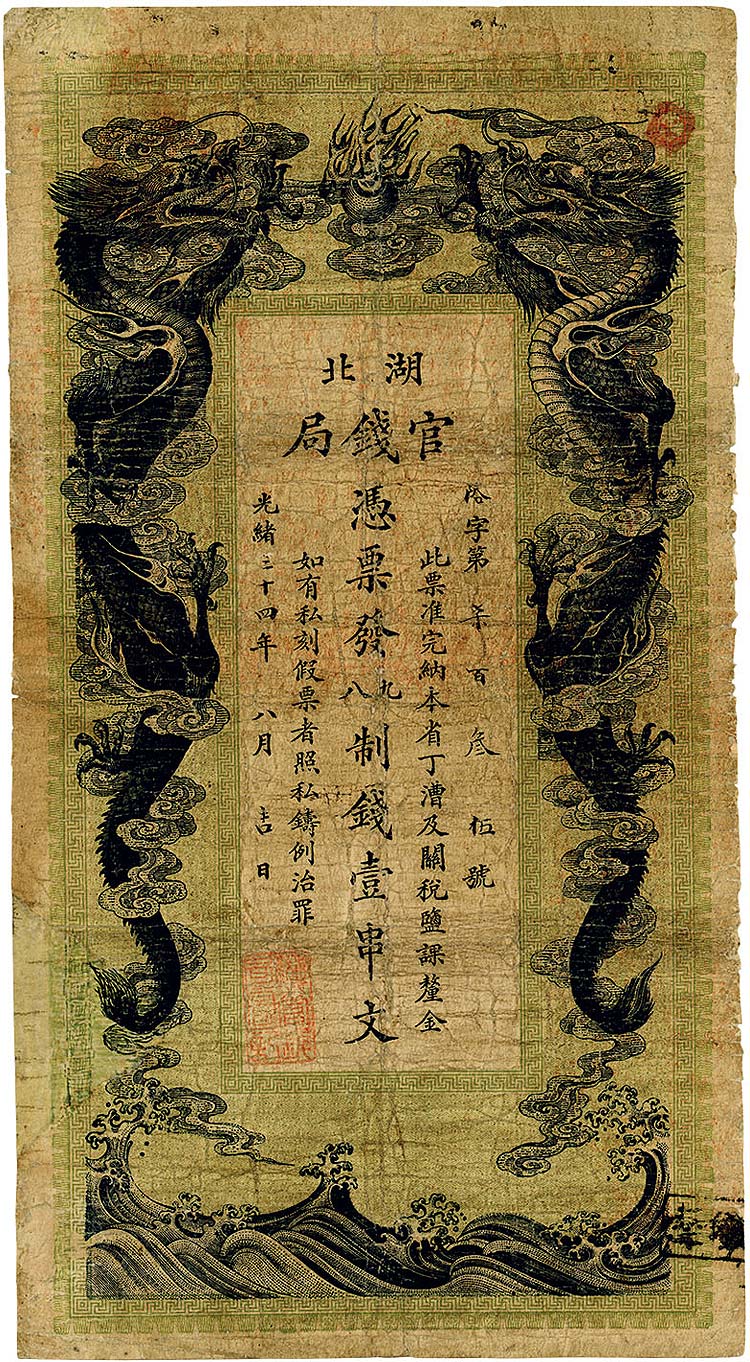 湖北
官錢局
字第 百叁 伍號
此票准完納本省丁漕及關稅鹽課釐金
憑票發九八制錢壹串文
如有私刻假票者照私鑄例治罪
光緒三十四年八月吉日